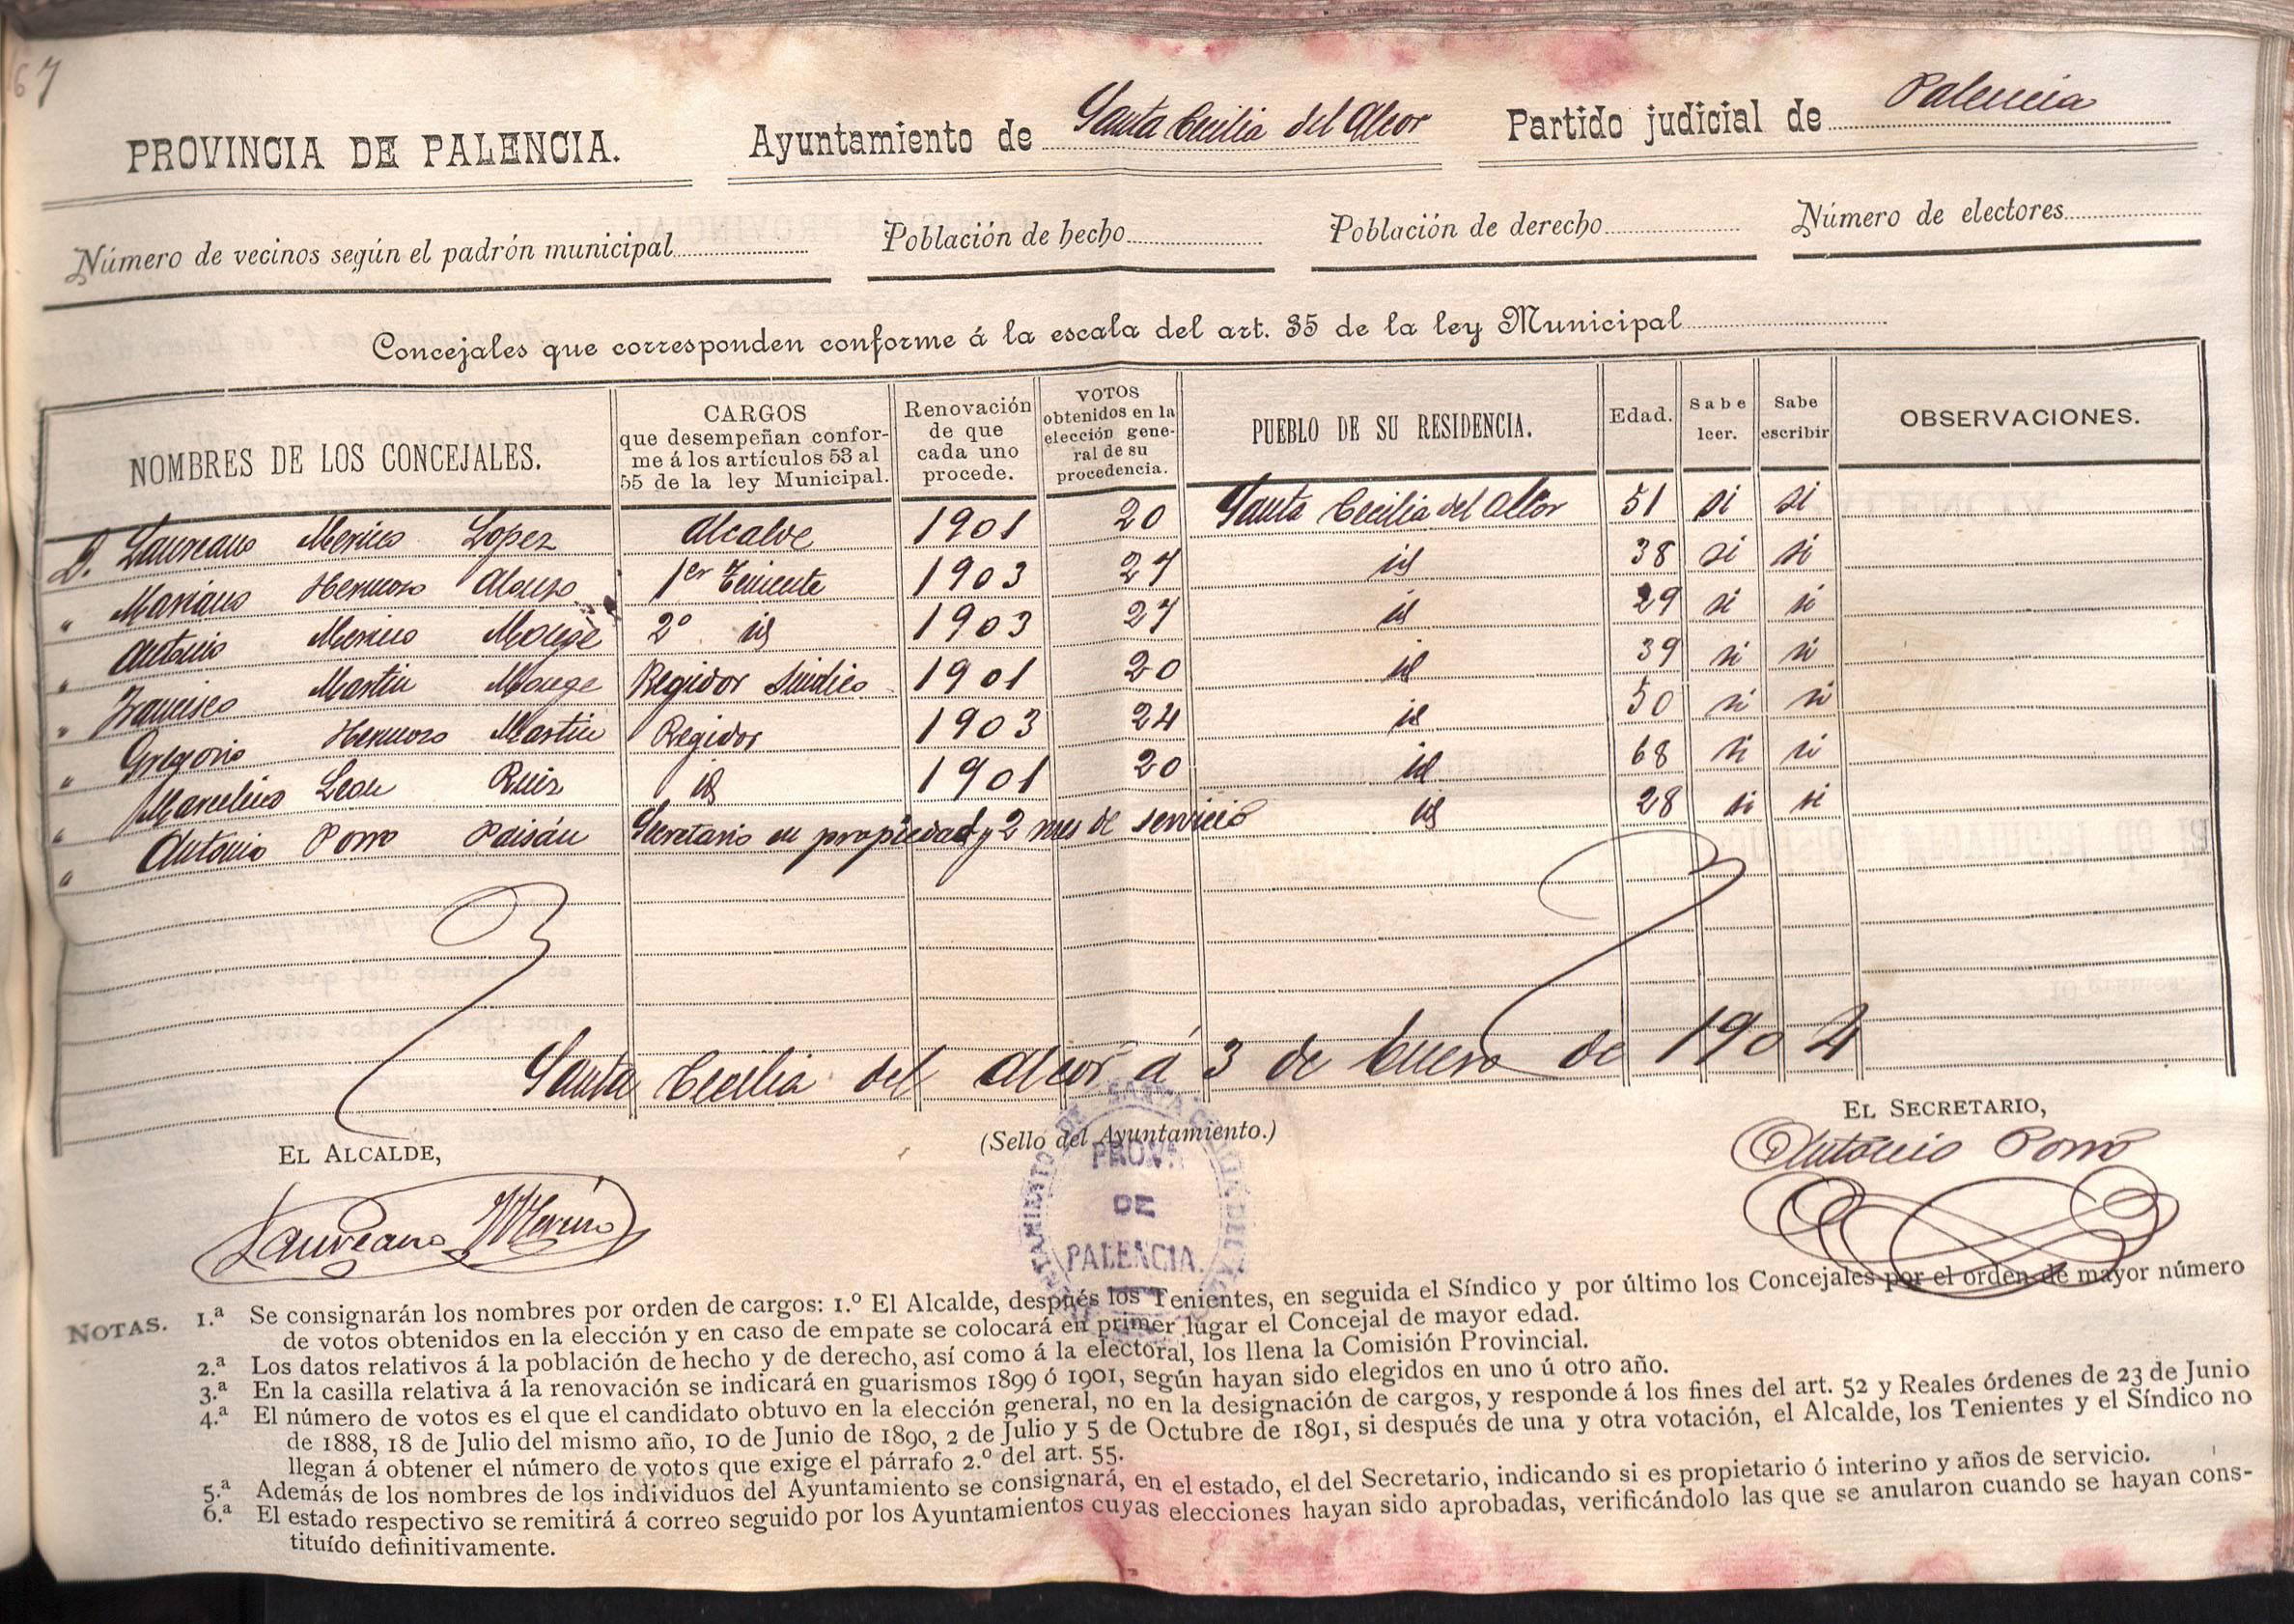 67
PROVINCIA DE PALENCIA. Ayuntamiento de Santa Cecilia del Alcor Partido judicial de Palencia
Número de vecinos según el padrón municipal Población de hecho Población de derecho Número de electores
Concejales que corresponden conforme á la escala del art. 35 de la ley Municipal
NOMBRES DE LOS CONCEJALES. CARGOS que desempeñan confor- me á los artículos 53 al 55 de la ley Municipal. Renovación de que cada uno procede. VOTOS obtenidos en la elección gene- ral de su procedencia. PUEBLO DE SU RESIDENCIA. Edad. Sabe leer. Sabe escribir OBSERVACIONES.
D. Laureano Merino Lopez Alcalde 1901 20 Santa Cecilia del Alcor 51 si si
" Mariano Hermoso Alonso 1er Teniente 1903 27 id 38 si si
" Antonio Merino Monge 2º id 1903 27 id 29 si si
" Francisco Martin Monge Regidor Sindico 1901 20 id 39 si si
" Gregorio Hermoso Martin Regidor 1903 24 id 50 si si
" Marcelino Leon Ruiz id 1901 20 id 68 si si
" Antonio Porro Paisán Secretario en propiedad y 2 mes de servicio id 28 si si
Santa Cecilia del Alcor á 3 de Enero de 1904
EL ALCALDE, (Sello del Ayuntamiento.) EL SECRETARIO,
Laureano Merino PROVA DE PALENCIA. Antonio Porro
NOTAS. 1.ª Se consignarán los nombres por orden de cargos: 1.º El Alcalde, después los Tenientes, en seguida el Síndico y por último los Concejales por el orden de mayor número
de votos obtenidos en la elección y en caso de empate se colocará en primer lugar el Concejal de mayor edad.
2.ª Los datos relativos á la población de hecho y de derecho, así como á la electoral, los llena la Comisión Provincial.
3.ª En la casilla relativa á la renovación se indicará en guarismos 1899 ó 1901, según hayan sido elegidos en uno ú otro año.
4.ª El número de votos es el que el candidato obtuvo en la elección general, no en la designación de cargos, y responde á los fines del art. 52 y Reales órdenes de 23 de Junio
de 1888, 18 de Julio del mismo año, 10 de Junio de 1890, 2 de Julio y 5 de Octubre de 1891, si después de una y otra votación, el Alcalde, los Tenientes y el Síndico no
llegan á obtener el número de votos que exige el párrafo 2.º del art. 55.
5.ª Además de los nombres de los individuos del Ayuntamiento se consignará, en el estado, el del Secretario, indicando si es propietario ó interino y años de servicio.
6.ª El estado respectivo se remitirá á correo seguido por los Ayuntamientos cuyas elecciones hayan sido aprobadas, verificándolo las que se anularon cuando se hayan cons-
tituído definitivamente.